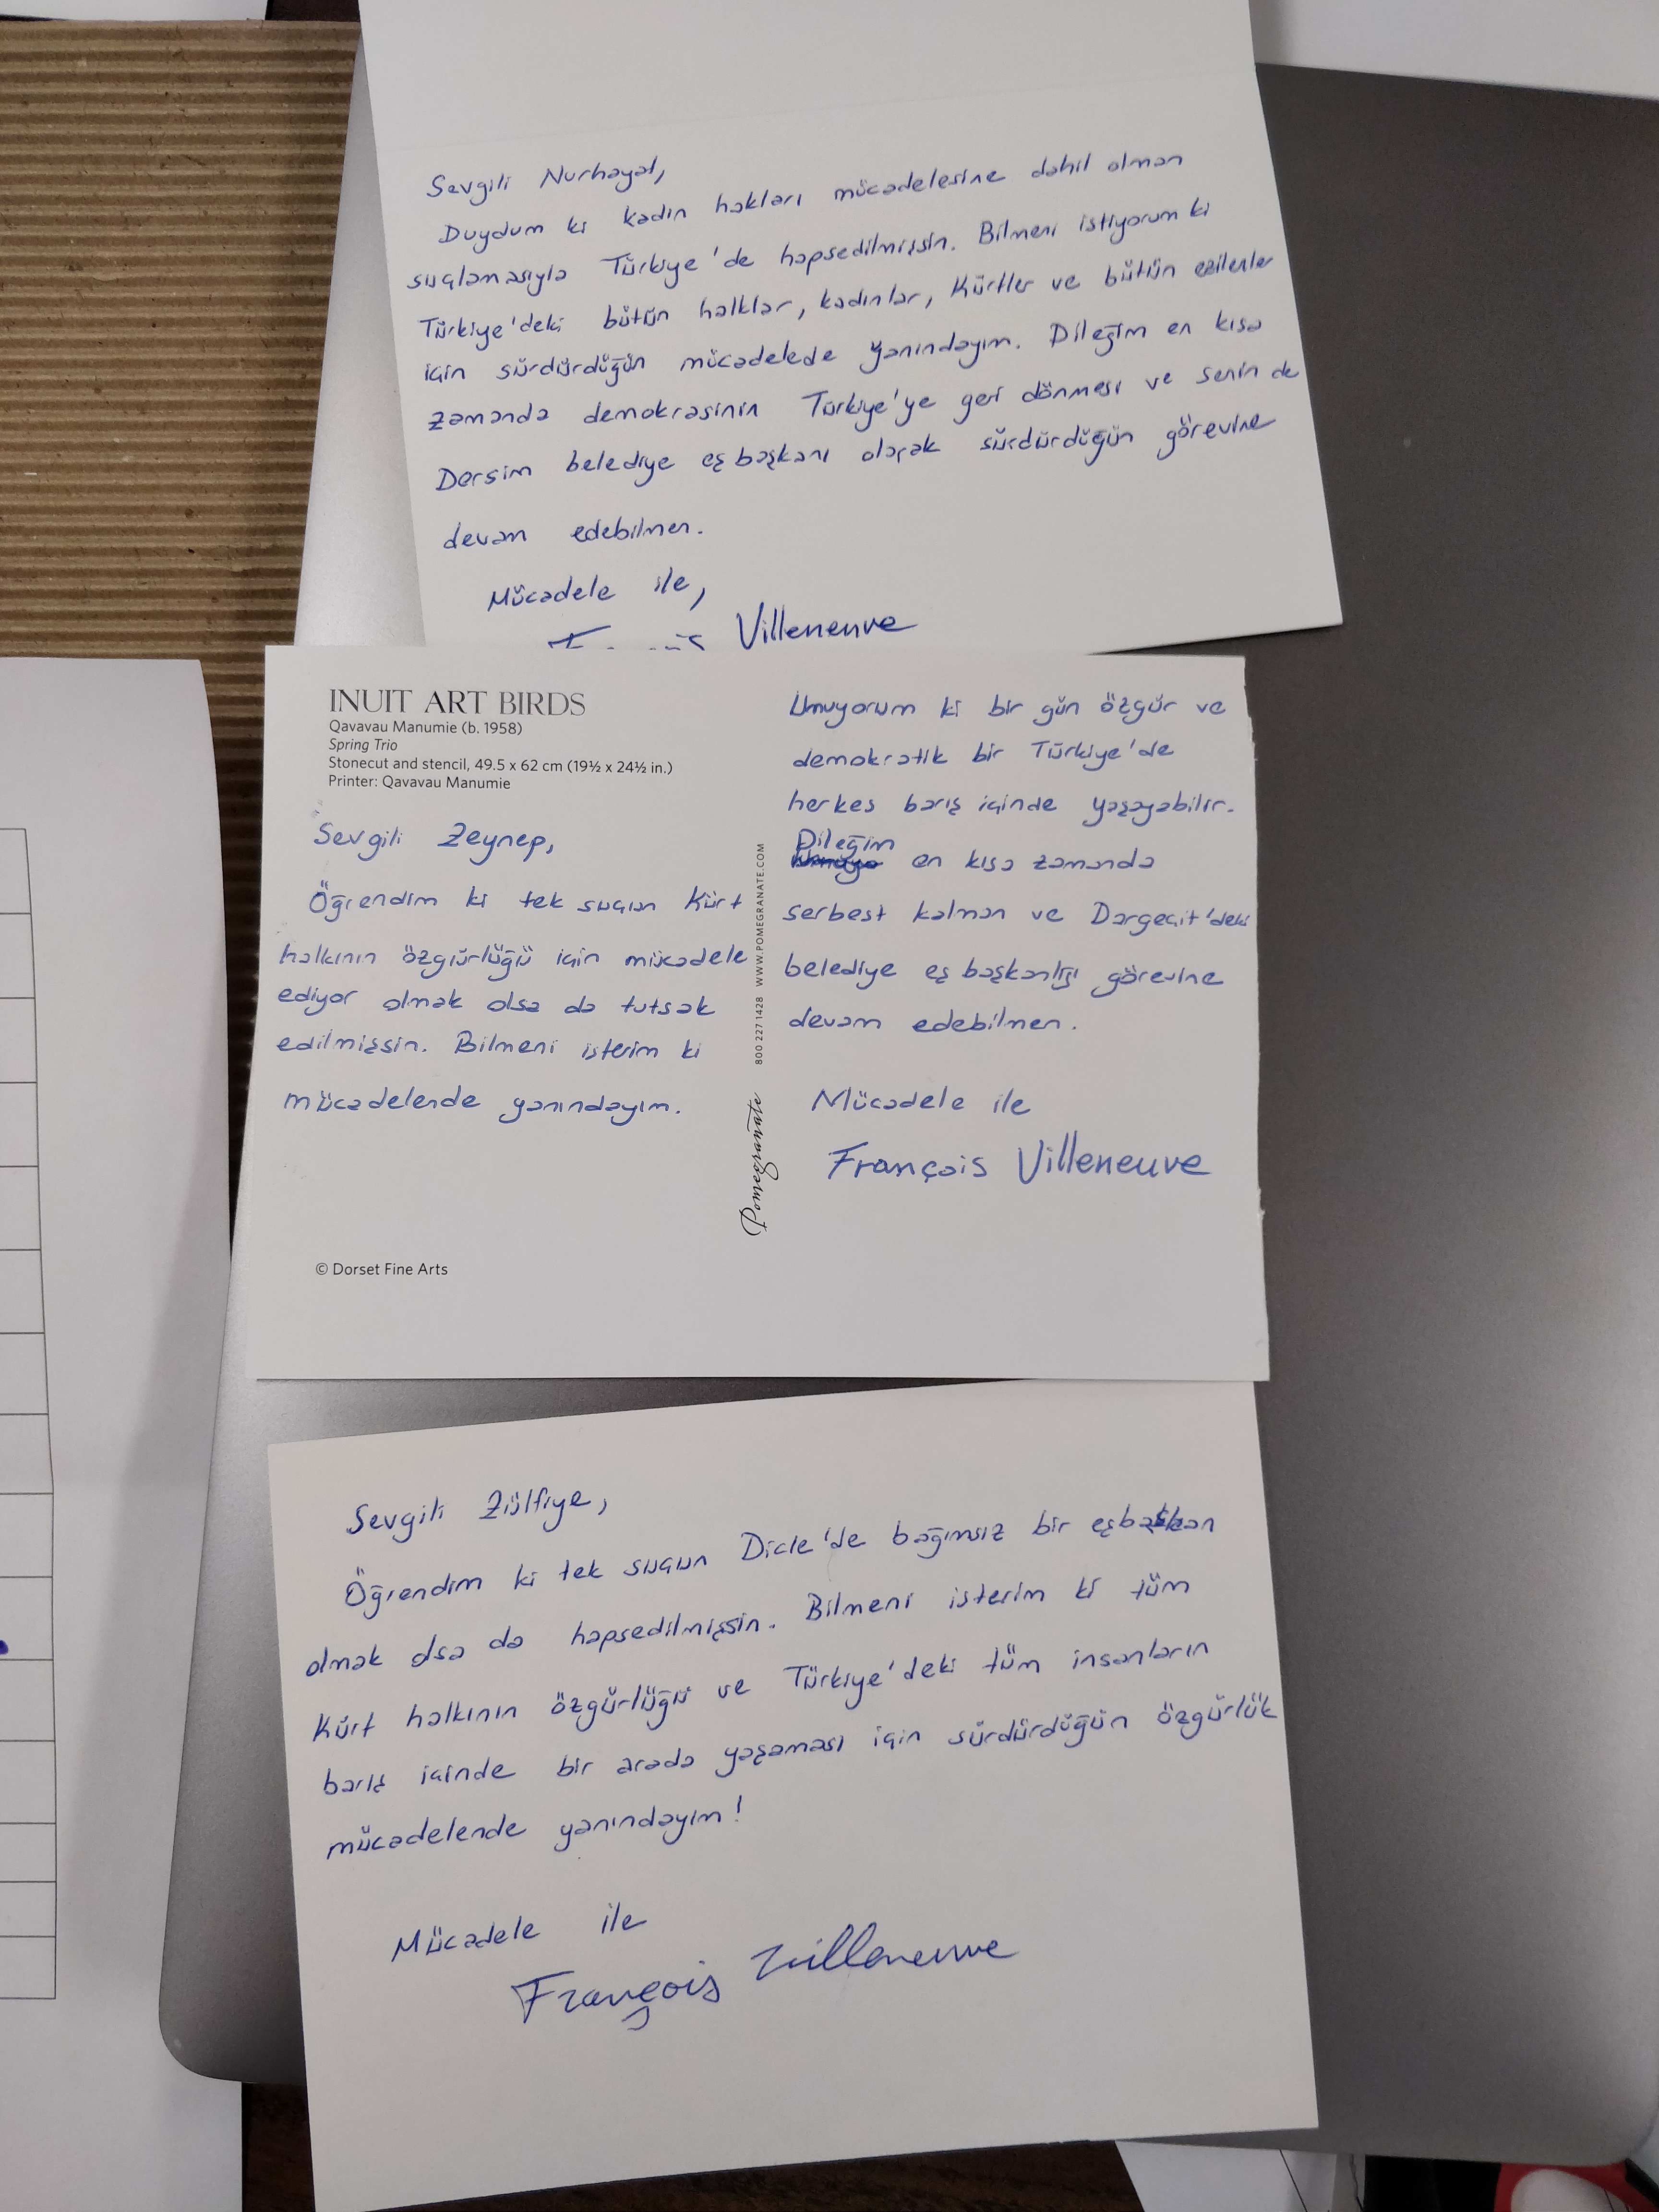 Sevgili Nurhayat,
Duydum ki kadın hakları mücadelesine dahil olman
suçlamasıyla Türkiye'de hapsedilmişsin. Bilmeni istiyorum ki
Türkiye'deki bütün halklar, kadınlar, Kürtler ve bütün ezilenler
için sürdürdüğün mücadelede yanındayım. Dileğim en kısa
zamanda demokrasinin Türkiye'ye geri dönmesi ve senin de
Dersim belediye eş başkanı olarak sürdürdüğün görevine
devam edebilmen.
Mücadele ile,
Villeneuve
INUIT ART BIRDS
Qavavau Manumie (b. 1958)
Spring Trio
Stonecut and stencil, 49.5 x 62 cm (19½ x 24½ in.)
Printer: Qavavau Manumie
Sevgili Zeynep,
Öğrendim ki tek suçun Kürt
halkının özgürlüğü için mücadele
ediyor olmak olsa da tutsak
edilmişsin. Bilmeni isterim ki
mücadelende yanındayım.
© Dorset Fine Arts
Pomegranate 800 227 1428 WWW.POMEGRANATE.COM
Umuyorum ki bir gün özgür ve
demokratik bir Türkiye'de
herkes barış içinde yaşayabilir.
Dileğim
en kısa zamanda
serbest kalman ve Dargeçit'deki
belediye eş başkanlığı görevine
devam edebilmen.
Mücadele ile
François Villeneuve
Sevgili Zülfiye,
Öğrendim ki tek suçun Dicle'de bağımsız bir eşbaşkan
olmak olsa da hapsedilmişsin. Bilmeni isterim ki tüm
Kürt halkının özgürlüğü ve Türkiye'deki tüm insanların
barış içinde bir arada yaşaması için sürdürdüğün özgürlük
mücadelende yanındayım!
Mücadele ile
François Villeneuve